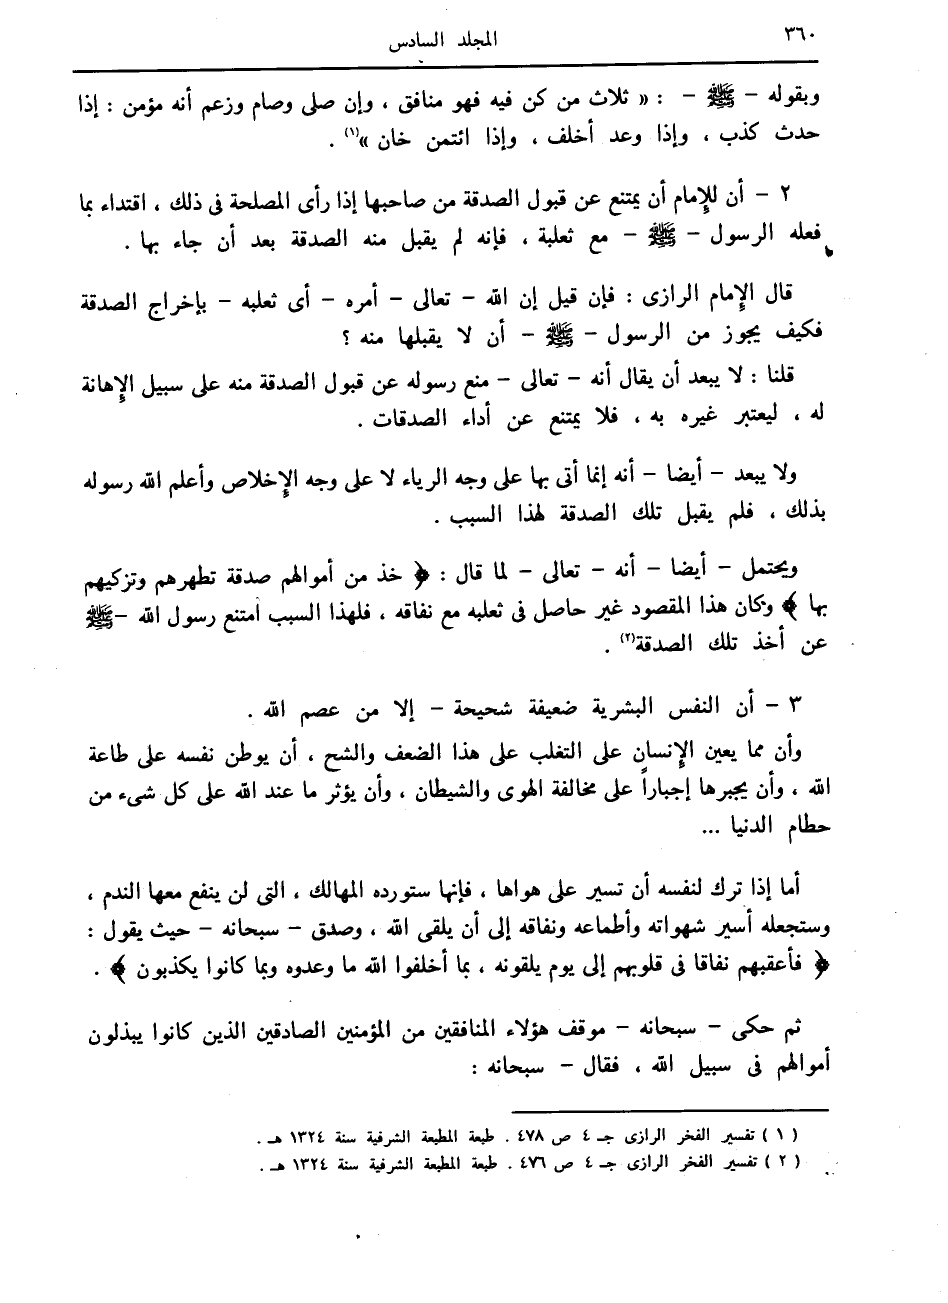 ٣٦٠
المجلد السادس
وبقوله - ﷺ - : « ثلاث من كن فيه فهو منافق ، وإن صلى وصام وزعم أنه مؤمن : إذا
حدث كذب ، وإذا وعد أخلف ، وإذا ائتمن خان »(١) .
٢ - أن للإمام أن يمتنع عن قبول الصدقة من صاحبها إذا رأى المصلحة فى ذلك ، اقتداء بما
فعله الرسول - ﷺ - مع ثعلبة ، فإنه لم يقبل منه الصدقة بعد أن جاء بها .
قال الإمام الرازى : فإن قيل إن الله - تعالى - أمره - أى ثعلبه - بإخراج الصدقة
فكيف يجوز من الرسول - ﷺ - أن لا يقبلها منه ؟
قلنا : لا يبعد أن يقال أنه - تعالى - منع رسوله عن قبول الصدقة منه على سبيل الإهانة
له ، ليعتبر غيره به ، فلا يمتنع عن أداء الصدقات .
ولا يبعد - أيضا - أنه إنما أتى بها على وجه الرياء لا على وجه الإخلاص وأعلم الله رسوله
بذلك ، فلم يقبل تلك الصدقة لهذا السبب .
ويحتمل - أيضا - أنه - تعالى - لما قال : ﴿ خذ من أموالهم صدقة تطهرهم وتزكيهم
بها ﴾ وكان هذا المقصود غير حاصل فى ثعلبه مع نفاقه ، فلهذا السبب امتنع رسول الله - ﷺ
عن أخذ تلك الصدقة(٢) .
٣ - أن النفس البشرية ضعيفة شحيحة - إلا من عصم الله .
وأن مما يعين الإنسان على التغلب على هذا الضعف والشح ، أن يوطن نفسه على طاعة
الله ، وأن يجبرها إجباراً على مخالفة الهوى والشيطان ، وأن يؤثر ما عند الله على كل شىء من
حطام الدنيا ...
أما إذا ترك لنفسه أن تسير على هواها ، فإنها ستورده المهالك ، التى لن ينفع معها الندم ،
وستجعله أسير شهواته وأطماعه ونفاقه إلى أن يلقى الله ، وصدق - سبحانه - حيث يقول :
﴿ فأعقبهم نفاقا فى قلوبهم إلى يوم يلقونه ، بما أخلفوا الله ما وعدوه وبما كانوا يكذبون ﴾ .
ثم حكى - سبحانه - موقف هؤلاء المنافقين من المؤمنين الصادقين الذين كانوا يبذلون
أموالهم فى سبيل الله ، فقال - سبحانه :
( ١ ) تفسير الفخر الرازى جـ ٤ ص ٤٧٨ . طبعة المطبعة الشرفية سنة ١٣٢٤ هـ .
( ٢ ) تفسير الفخر الرازى جـ ٤ ص ٤٧٦ . طبعة المطبعة الشرفية سنة ١٣٢٤ هـ .